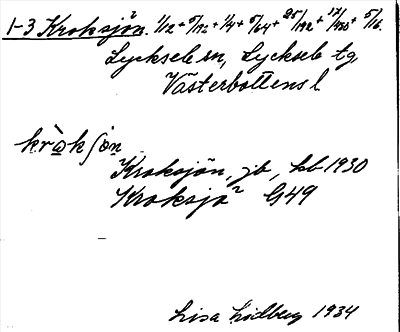 1-3 Kroksjön. 1/12 + 5/192 + 1/4 + 5/64 + 25/192 + 17/480 + 5/16.
Lycksele sn, Lycksele tg,
Västerbottens l
Kroksjön, jb, kb 1930
Kroksjö² G49
Lisa Lidberg 1934